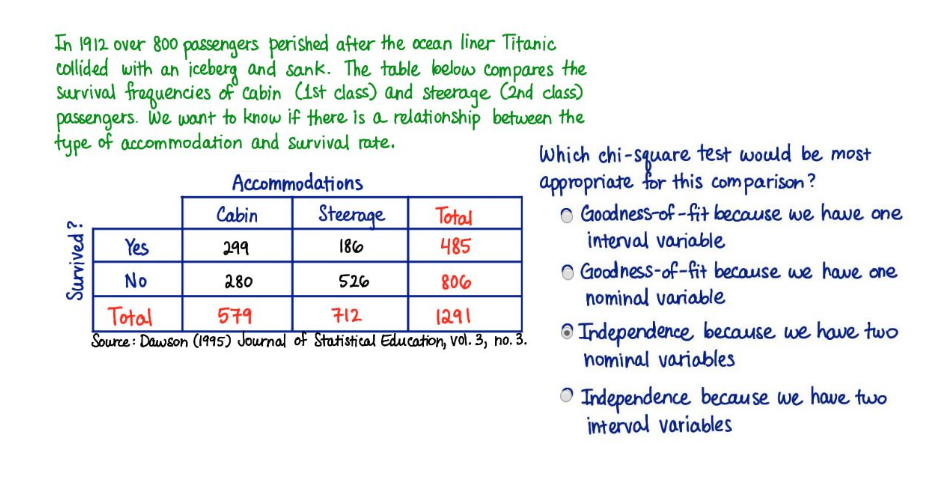 In 1912 over 800 passengers perished after the ocean liner Titanic
collided with an iceberg and sank. The table below compares the
survival frequencies of cabin (1st class) and steerage (2nd class)
passengers. We want to know if there is a relationship between the
type of accommodation and survival rate.
Accommodations
Cabin Steerage Total
Survived?
Yes 299 186 485
No 280 526 806
Total 579 712 1291
Source: Dawson (1995) Journal of Statistical Education, Vol. 3, no. 3.
Which chi-square test would be most
appropriate for this comparison?
Goodness-of-fit because we have one
interval variable
Goodness-of-fit because we have one
nominal variable
Independence because we have two
nominal variables
Independence because we have two
interval variables